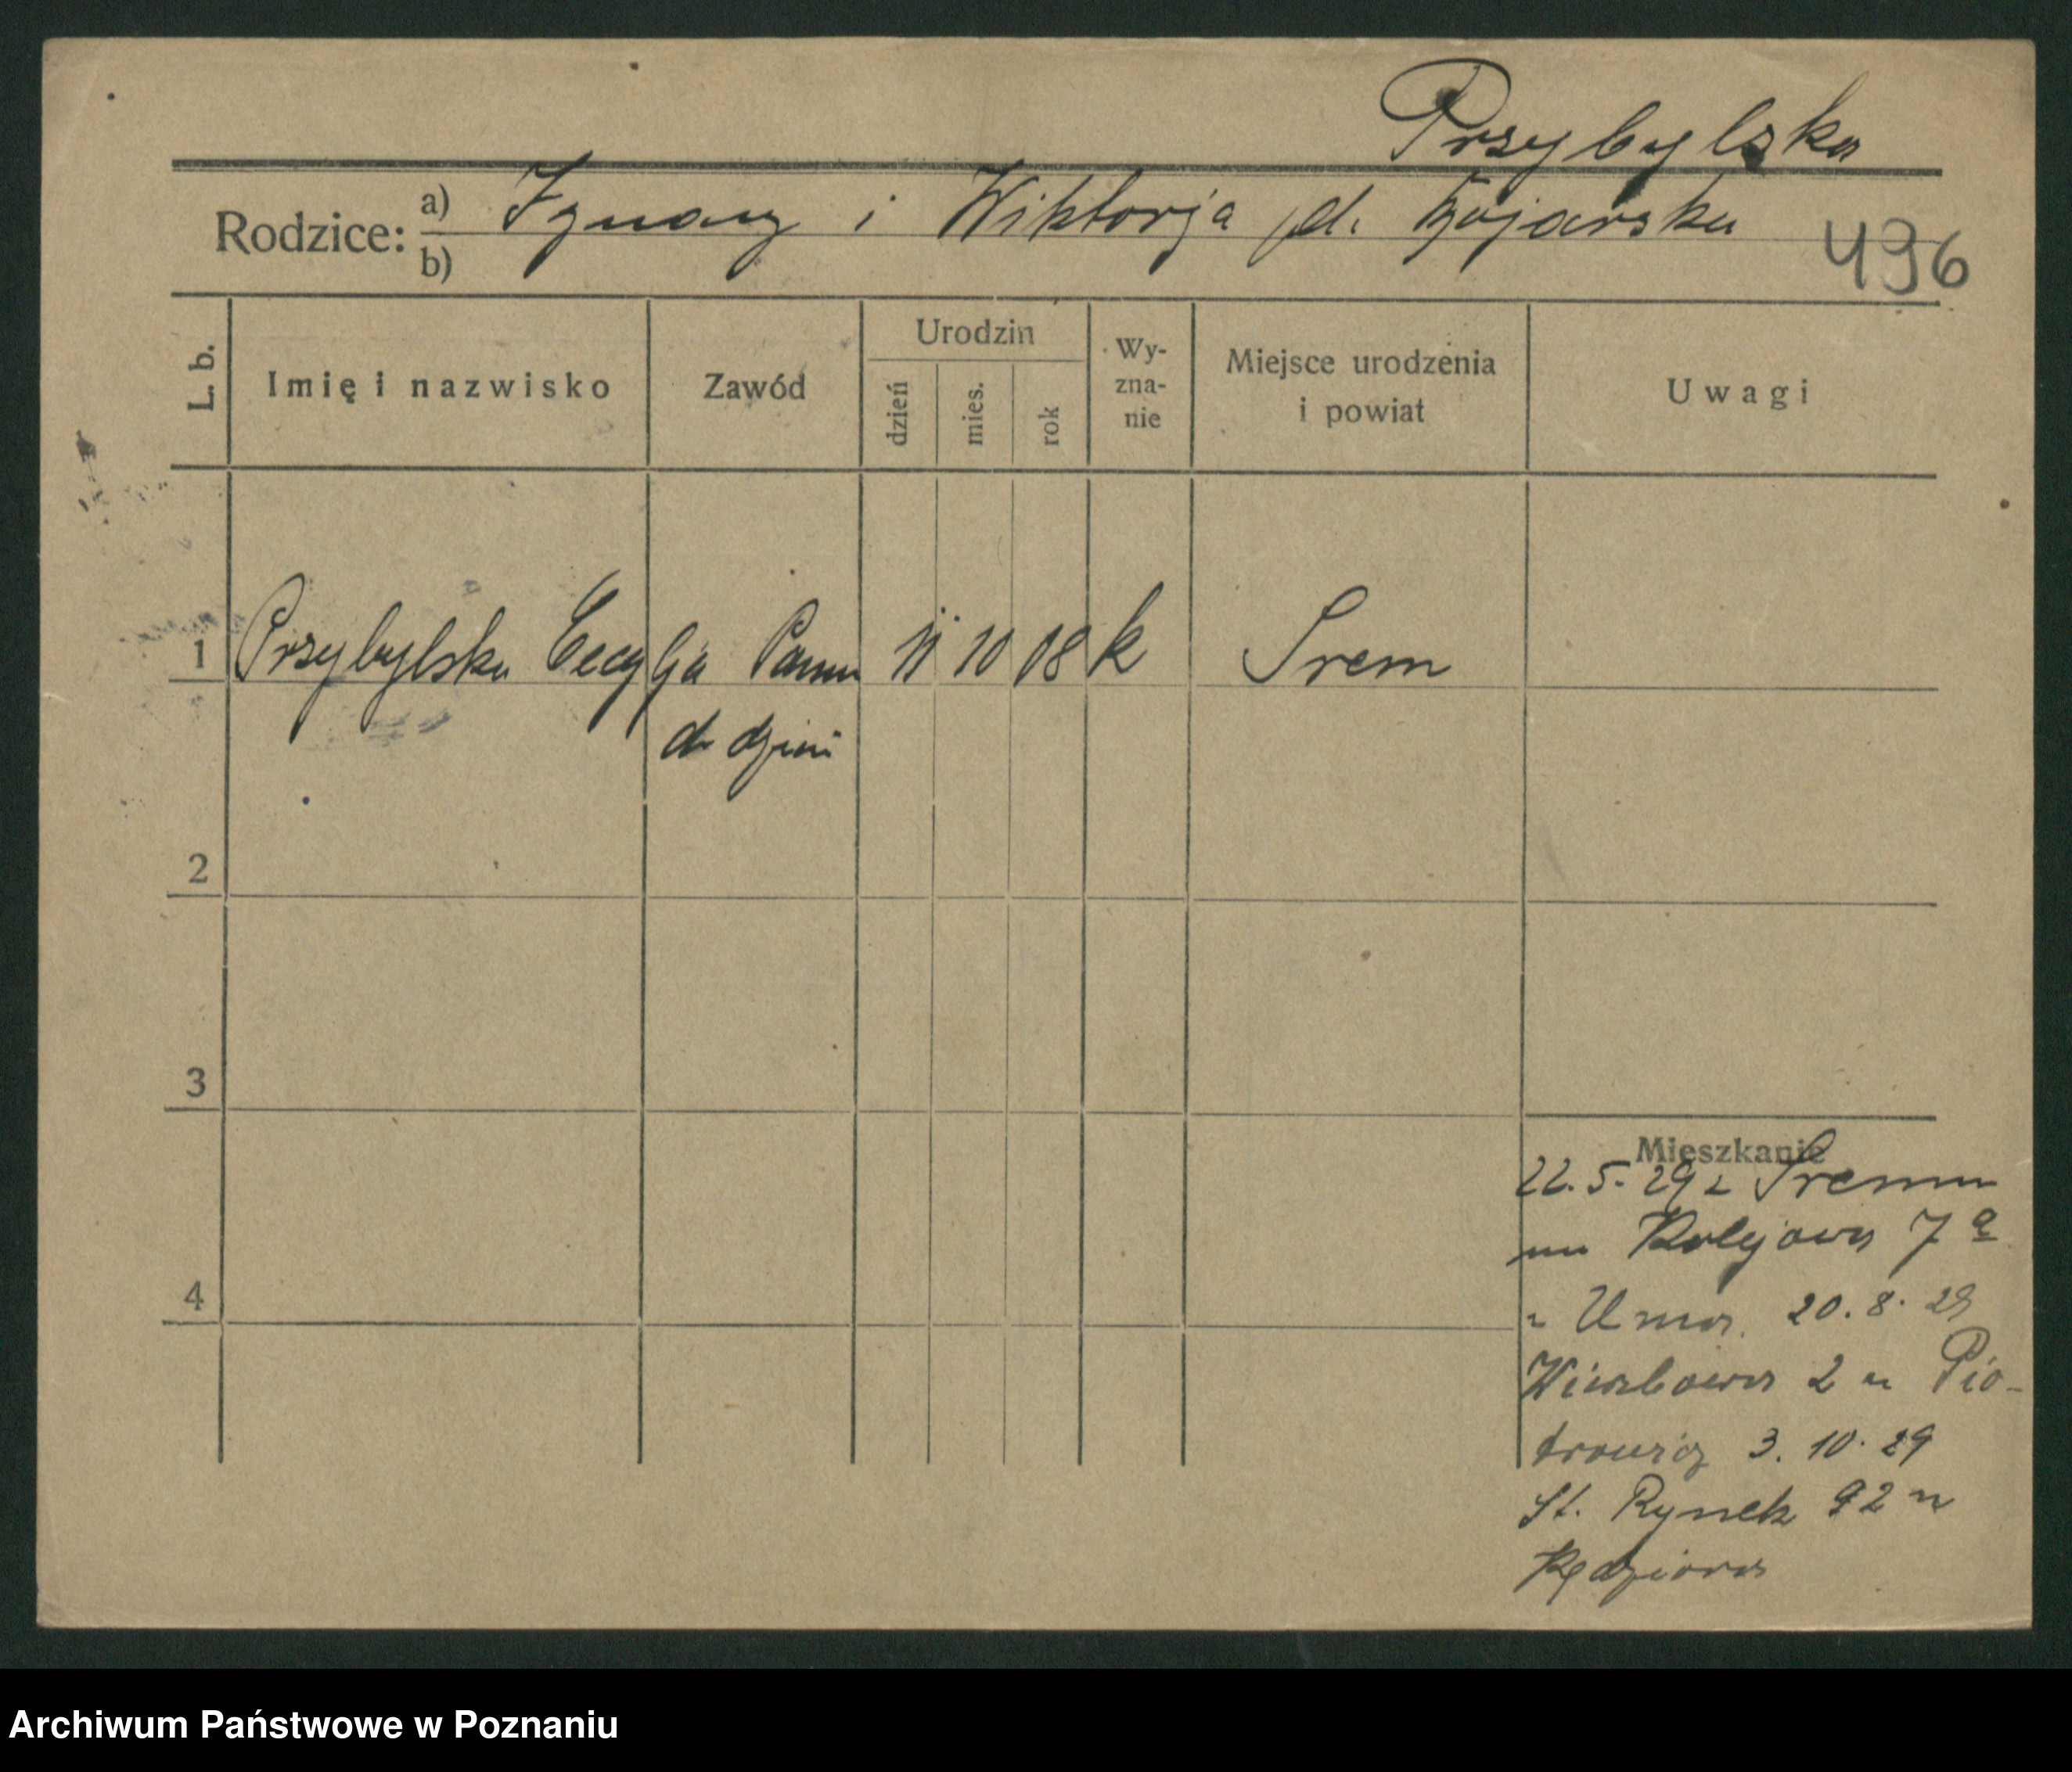 Przybylska
Rodzice: a) Ignacy i Wiktorja d.
b)
496
L. b. Imię i nazwisko Zawód Urodzin dzień mies. rok Wy-zna-nie Miejsce urodzenia i powiat Uwagi
1 Przybylska Cecylja Panna 11 10 08 k Śrem
do dzieci
2
3
Mieszkanie
22. 5. 29 z Śremu
Kolejowa 7a
u 20. 8. 29
Wierzbowa 2 u Pio-
trowicz 3. 10. 29
St. Rynek 92 u
Kędziora
4
Archiwum Państwowe w Poznaniu